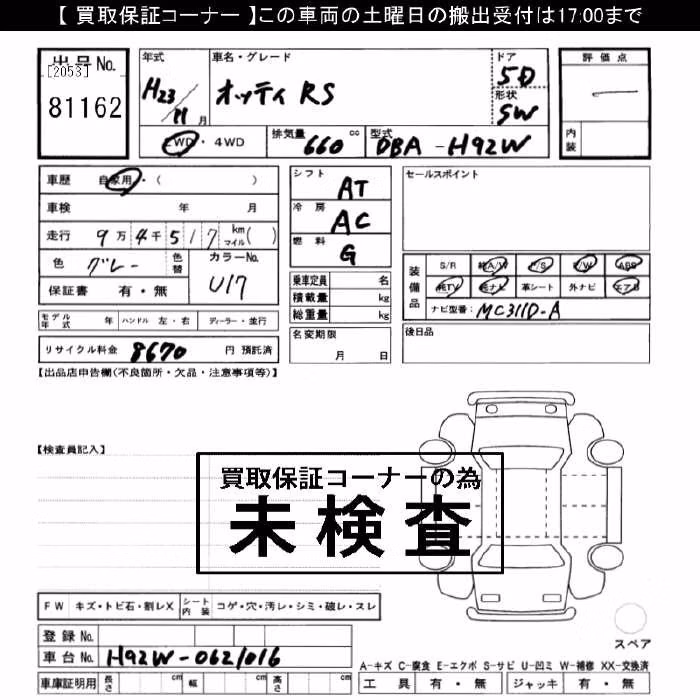 【 買取保証コーナー 】この車両の土曜日の搬出受付は17:00まで
出品No.
[2053]
81162
年式
H23/11月
車名・グレード
オッティ RS
ドア
5D
形状
SW
評価点
内装
2WD・4WD
排気量 660 cc
型式 DBA-H92W
車歴 自家用・( )
車検 年 月
走行 9万4千517 km マイル( )
色 グレー 色替
カラーNo. U17
保証書 有・無
シフト AT
冷房 AC
燃料 G
乗車定員 名
積載量 kg
総重量 kg
セールスポイント
装備品
S/R 純A/W P/S P/W ABS
純TV 純ナビ 革シート 外ナビ エアB
ナビ型番: MC311D-A
モデル年式 年 ハンドル 左・右 ディーラー・並行
名変期限
月 日
後日品
リサイクル料金 8670 円 預託済
【出品店申告欄(不良箇所・欠品・注意事項等)】
【検査員記入】
買取保証コーナーの為
未検査
FW キズ・トビ石・割レX シート内装 コゲ・穴・汚レ・シミ・破レ・スレ
登録No.
車台No. H92W-0621016
車庫証明用 長さ cm 幅 cm 高さ cm
スペア
A-キズ C-腐食 E-エクボ S-サビ U-凹ミ W-補修 XX-交換済
工具 有・無 ジャッキ 有・無